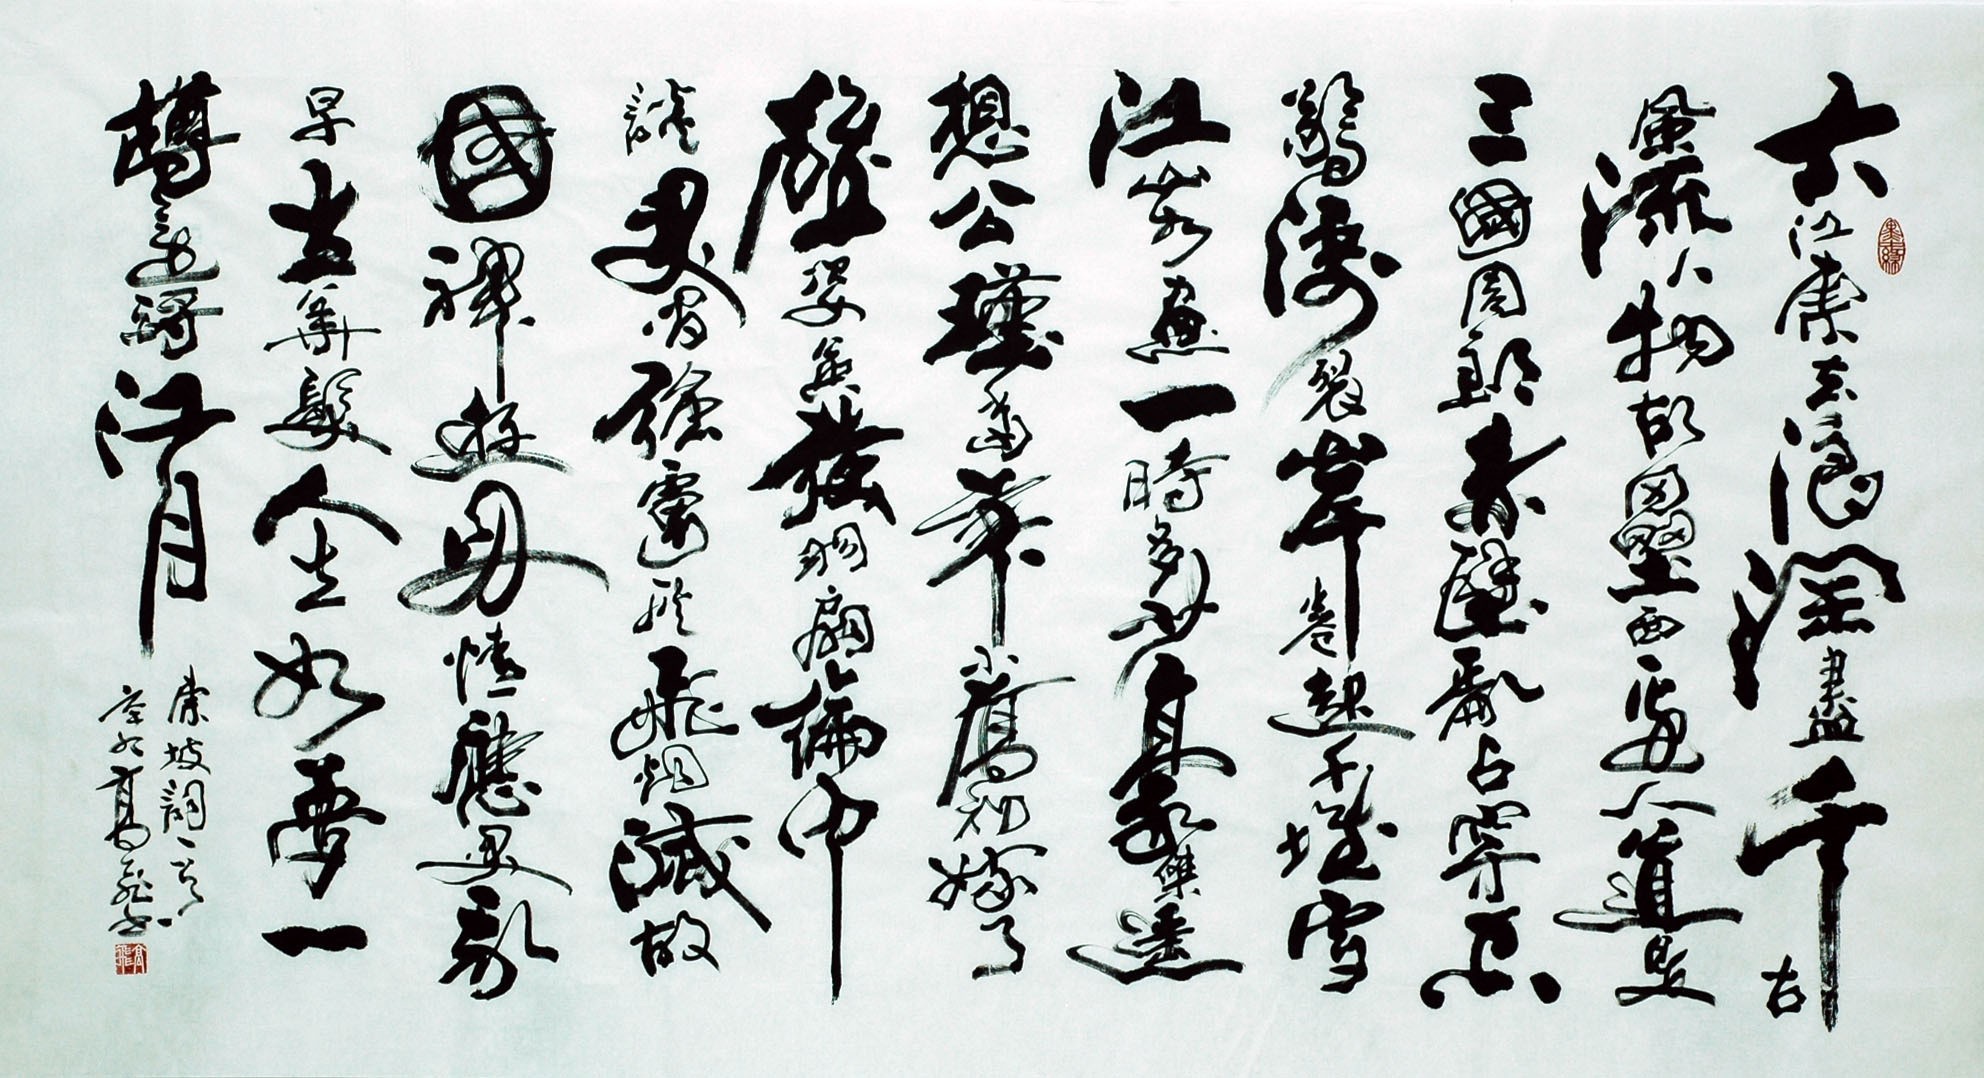 大江東去浪淘盡千古
風流人物故壘西邊人道是
三國周郎赤壁亂石穿空
驚濤裂岸卷起千堆雪
江山如畫一時多少豪傑遙
想公瑾當年小喬初嫁了
雄姿英發羽扇綸巾
談笑間強虜灰飛烟滅故
國神遊多情應笑我
早生華髮人生如夢一
樽還酹江月
東坡詞一首
高飛書
高飛